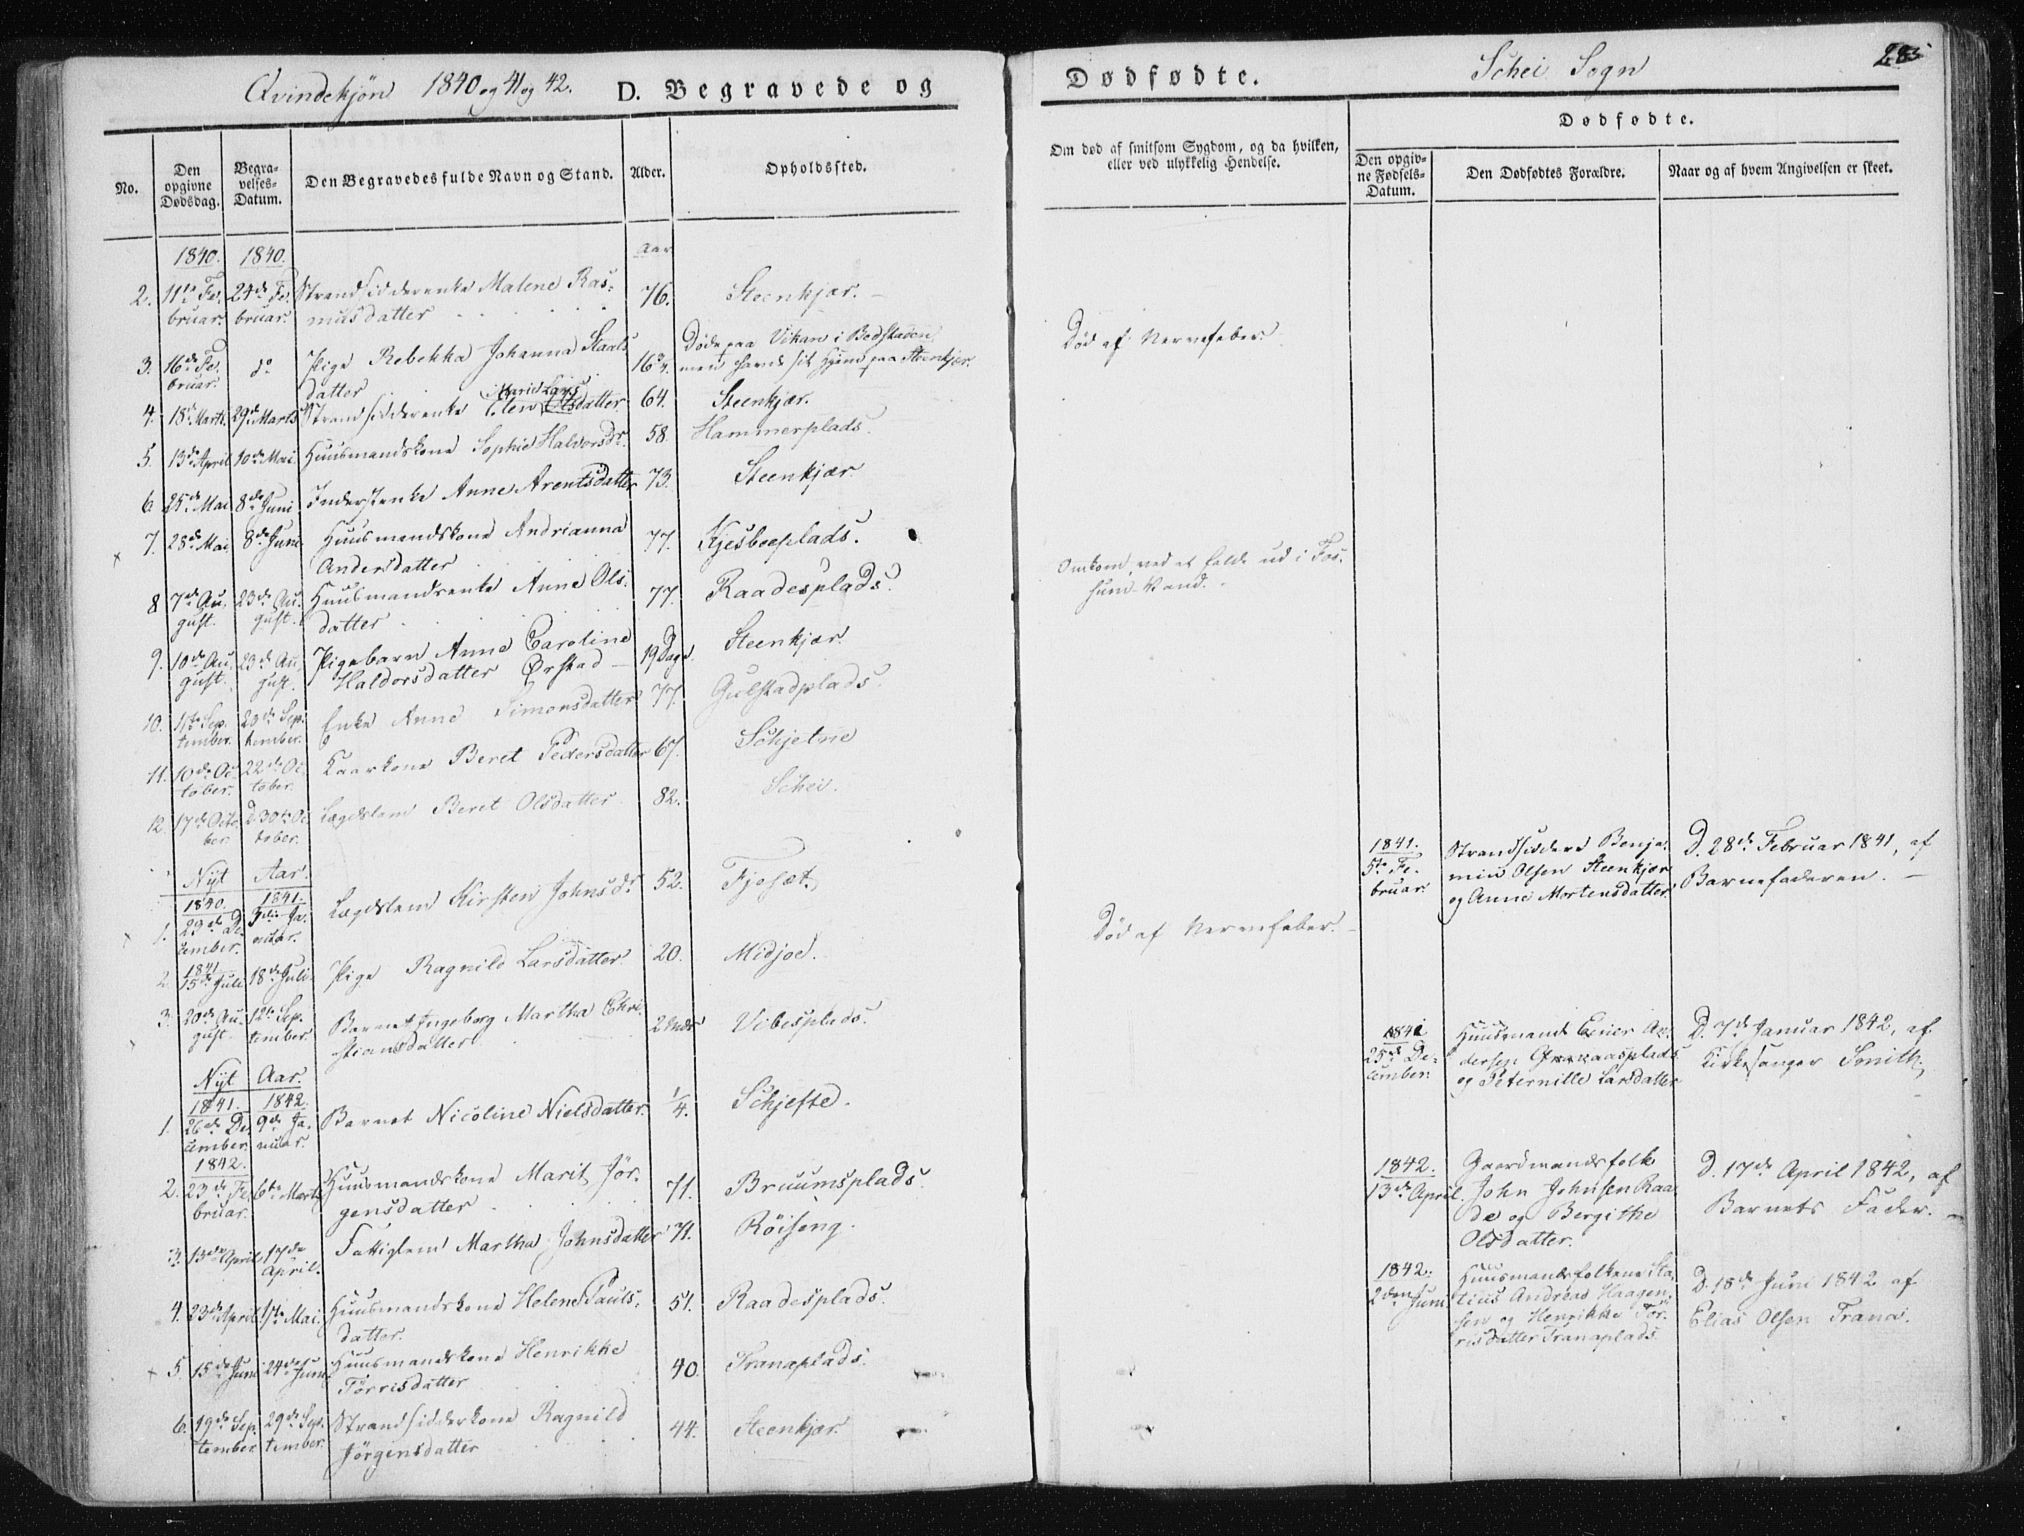 Qvindekjøn 1840 og 41 og 42. D. Begravede og
Dødfødte. Schei Sogn
No. Den opgivne Dødsdag. Begravelses-Datum. Den Begravedes fulde Navn og Stand. Alder. Opholdssted.
Om død af smitsom Sygdom, og da hvilken, eller ved ulykkelig Hendelse.
Dødfødte.
Den opgivne Fødsels-Datum. Den Dødfødtes Forældre. Naar og af hvem Angivelsen er skeet.
1840. 1840. Aar
2. 11te Februar. 24de Februar. Strandsidderenke Malene Rasmusdatter 76. Steenkjær.
3. 16de Februar. do Pige Rebekka Johanna Døde paa Vikan i Bedstaden men havde sit Hjem paa Steenkjær. Død af Nervefeber.
4. 18de Marts. 29de Marts Strandsidderenke Elen Marie Larsdatter 64. Steenkjær.
5. 13de April 10de Mai. Huusmandskone Sophie Halvorsdr. 58. Hammerplads.
6. 25de Mai 8de Juni Inderstenke Anne Arentsdatter 73. Steenkjær
7. 28de Mai 8de Juni Huusmandskone Andrianna Andersdatter 77. Kjesboeplads.
Omkom ved at falde ud i Fossum-Vand.
8 7de August. 23de August. Huusmandsenke Anne Olsdatter 77. Raadesplads.
9. 10de August. 23de August. Pigebarn Anne Caroline Haldorsdatter Ørstad 19 Dage. Steenkjær.
10. 11te September. 20de September. Enke Anne Simonsdatter 77. Gulstadplads.
11. 10de October. 22de October. Kaarkone Beret Pedersdatter 67. Schjetne
12. 17de October. D. 30te October. Lægdslem Beret Olsdatter. 82. Schei.
Nyt Aar.
1840. 1841.
1. 29de December. 3die Januar. Lægdslem Kirsten Johnsdr. 52. Fjesæt.
1841. 5te Februar. Strandsidder Benjamin Olsen Steenkjær og Anne Mortensdatter. D. 28de Februar 1841, af Barnefaderen.
1841
2. 15de Juli 18de Juli Pige Ragnild Larsdatter 20. Midjoe. Død af Nervefeber.
3. 20de August. 12te September. Barnet Ingeborg Martha Christiansdatter 2 Vibesplads.
1841 25de December. Huusmand Andersen og Peternille Larsdatter D. 7de Januar 1842, af Kirkesanger Smith.
Nyt Aar.
1841. 1842.
1. 26de December. 9de Januar. Barnet Nicoline Nielsdatter. 1/4. Schjefte.
1842.
2. 23de Februar. 6te Marts Huusmandskone Marit Jörgensdatter 71. Bruumsplads.
1842. 13de April. Gaardmandsfolk John Johnsen Raade og Bergithe Olsdatter. D. 17de April 1842, af Barnets Fader.
3. 13de April 17de April. Fattiglem Martha Johnsdatter 71. Röiseng.
4. 23de April 1ste Mai. Huusmandskone Helene Paulsdatter. 51. Raadesplads.
1842. 2den Juni Huusmandsfolkene Andreas Haagensen og Henrikke Törrisdatter Tranaplads. D. 18de Juni 1842 af Elias Olsen Trana.
5. 15de Juni 24de Juni Huusmandskone Henrikke Törrisdatter 40. Tranaplads.
6. 19de September. 29de September. Strandsidderkone Ragnild Jörgensdatter 44. Steenkjær.